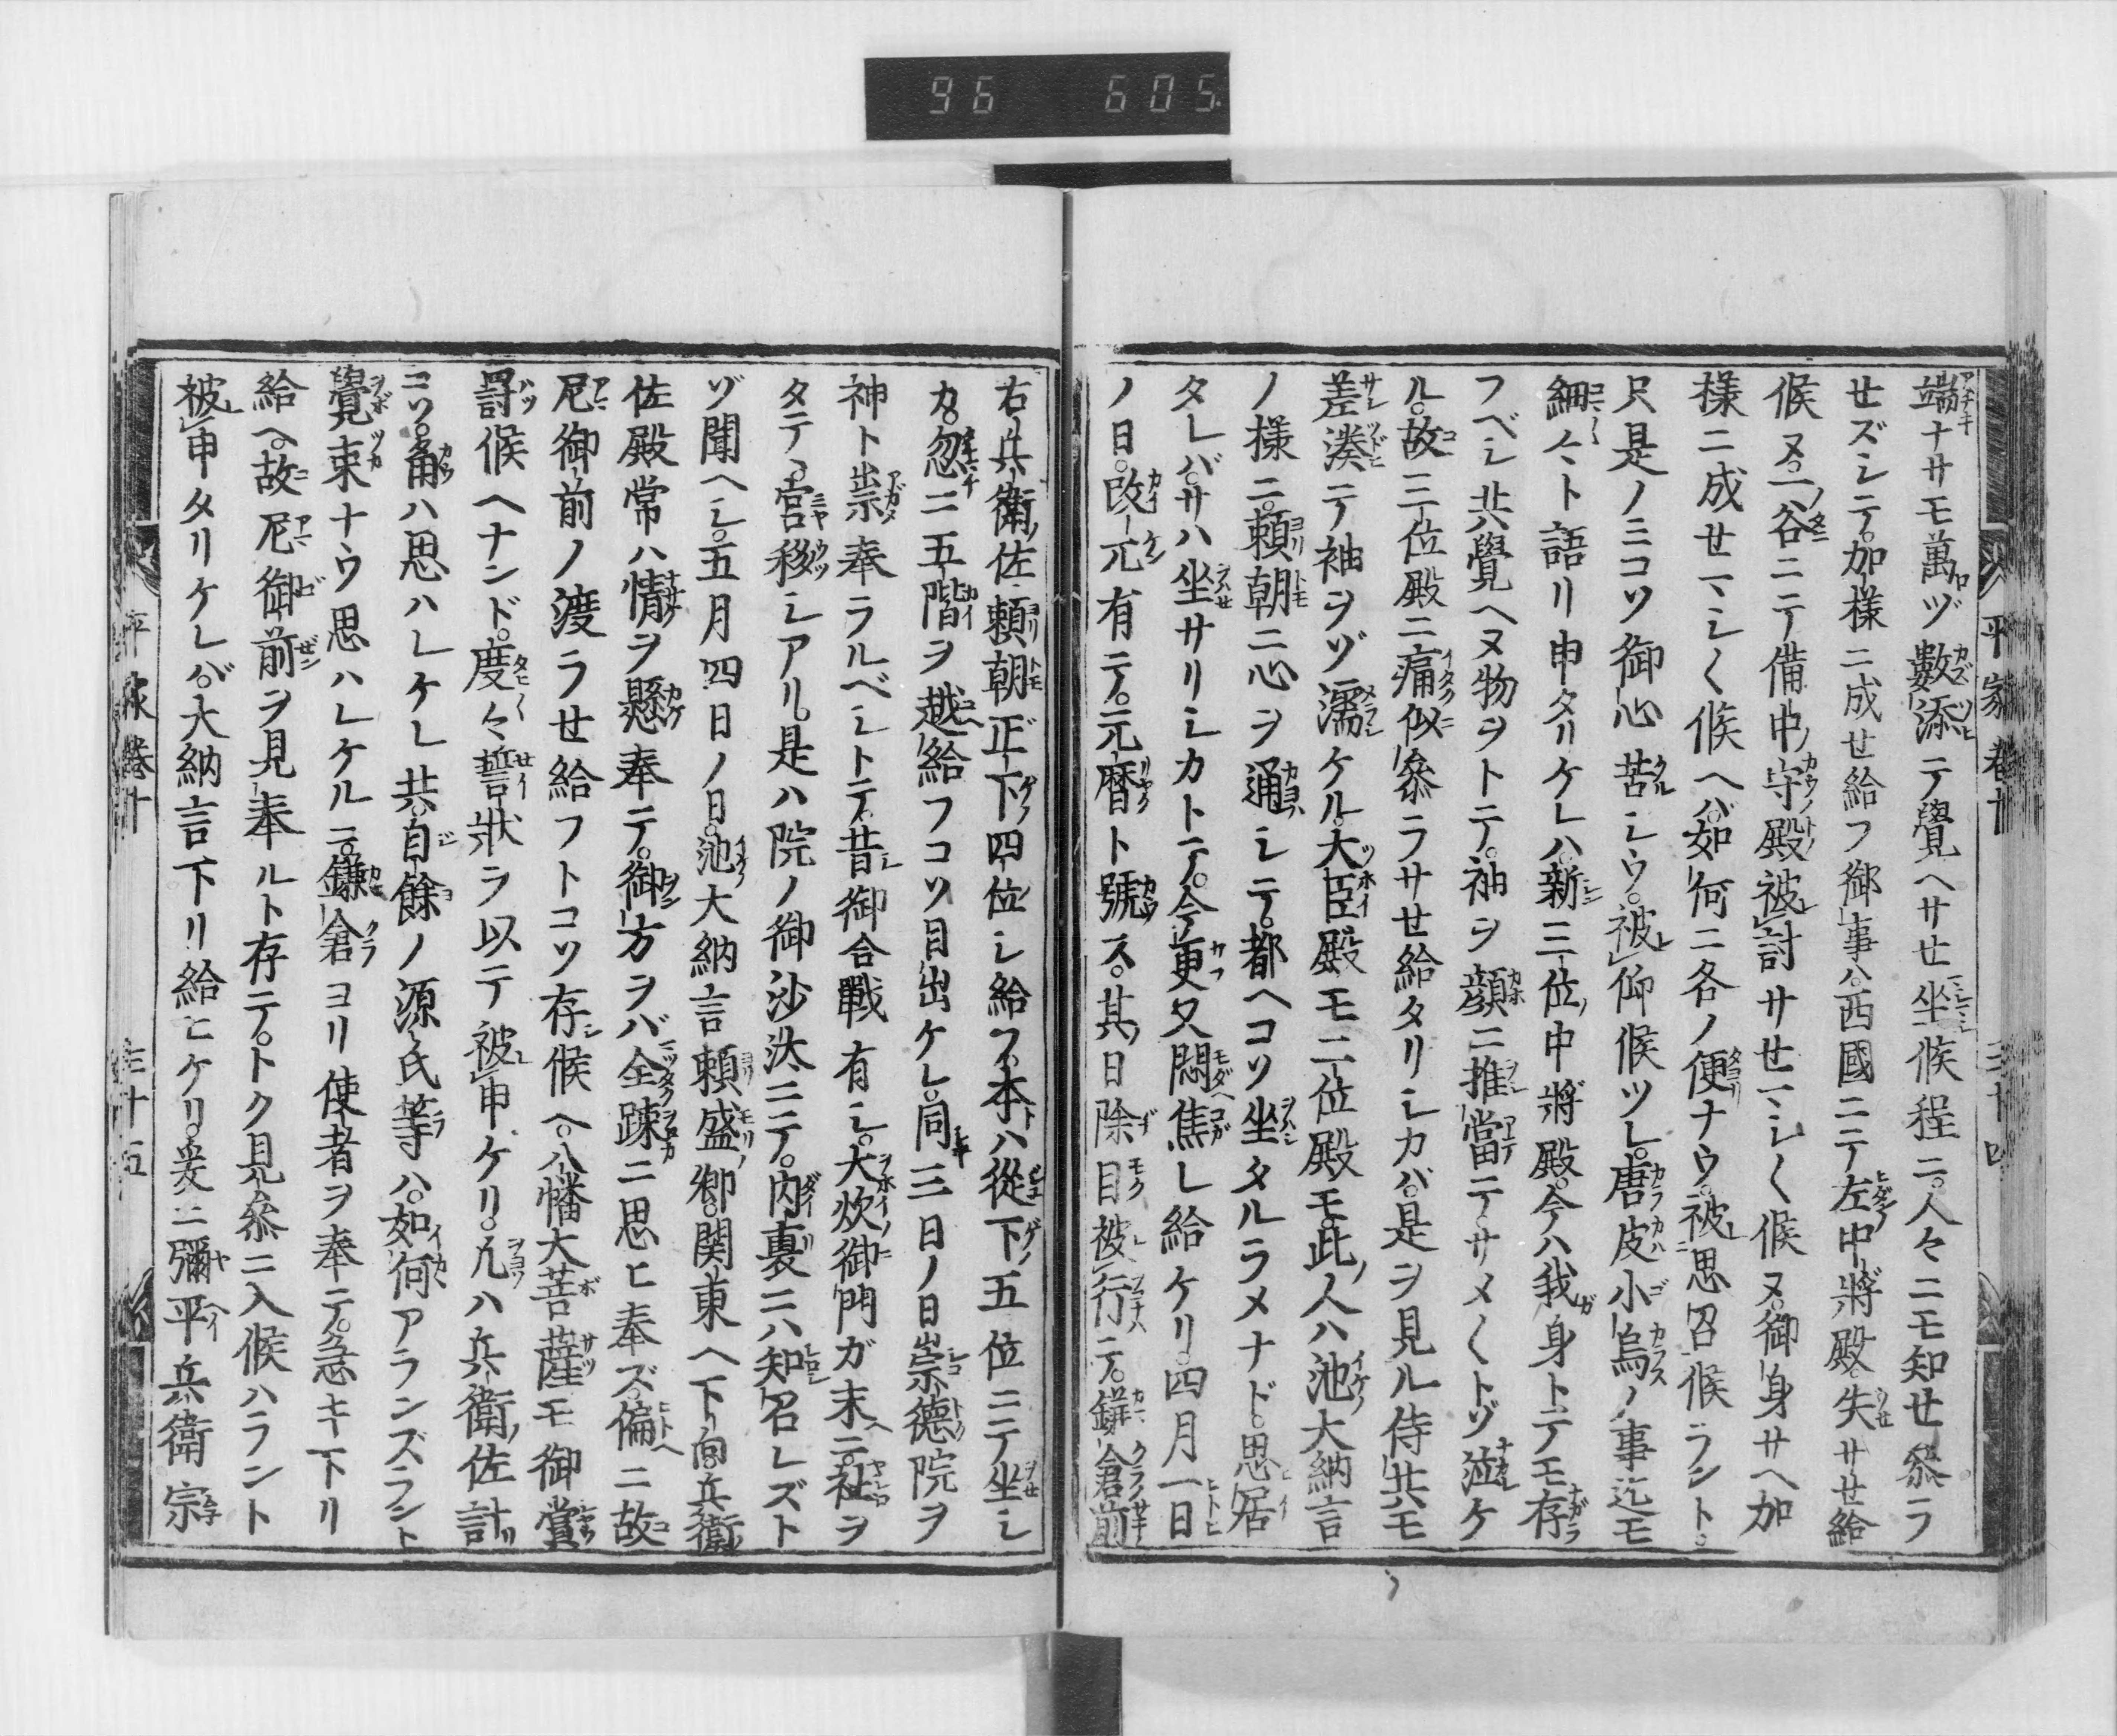 96 605
平家卷十 三十四
端ナサモ萬ヅ數添テ覺ヘサせ坐候程ニ。人々ニモ知せ參ラ
せズシテ。加樣ニ成せ給フ御事ハ。西國ニテ左中將殿失サせ給
候ヌ。一谷ニテ備中守殿被討サせマシ〳〵候ヌ。御身サヘ加
樣ニ成せマシ〳〵候ヘバ。如何ニ各ノ便ナウ。被思召候ラント。
只是ノミコソ御心苦シウ。被仰候ツレ。唐皮小烏ノ事迄モ
細々ト語リ申タリケレハ。新三位中將殿。今ハ我身トテモ存
フベシ共覺ヘヌ物ヲトテ。袖ヲ顔ニ推當テサメ〳〵トゾ泣ケ
ル。故三位殿ニ痛似參ラサせ給タリシカバ。是ヲ見ル侍共モ
差湊テ袖ヲゾ濡ケル。大臣殿モ二位殿モ。此人ハ池大納言
ノ樣ニ。頼朝ニ心ヲ通シテ。都ヘコソ坐タルラメナド。思居
タレバ。サハ坐サリシカトテ。今更又悶焦レ給ケリ。四月一日
ノ日。改元有テ。元曆ト號ス。其日除目被行テ。鎌倉前
右兵衛佐頼朝正下四位シ給フ。本ハ從下五位ニテ坐シ
カ。忽ニ五階ヲ越給フコソ目出ケレ。同三日ノ日崇德院ヲ
神ト崇奉ラルベシトテ。昔御合戰有シ。大炊御門ガ末ニ。社ヲ
タテ、宮移シアリ。是ハ院ノ御沙汰ニテ。内裏ニハ知召レズト
ゾ聞ヘシ。五月四日ノ日。池大納言頼盛卿。関東ヘ下向。兵衛
佐殿常ハ情ヲ懸奉テ。御方ヲバ全踈ニ思ヒ奉ズ。偏ニ故
尼御前ノ渡ラせ給フトコソ存候ヘ。八幡大菩薩モ御賞
罸候ヘナンド。度々誓狀ヲ以テ被申ケリ。凡ハ兵衛佐計
コソ。角ハ思ハレケレ共。自餘ノ源氏等ハ。如何アランズラント
覺束ナウ思ハレケルニ。鎌倉ヨリ使者ヲ奉テ。急キ下リ
給ヘ。故尼御前ヲ見奉ルト存テ。トク見參ニ入候ハラント
被申タリケレバ。大納言下リ給ヒケリ。爰ニ彌平兵衛宗
平家卷十 三十五